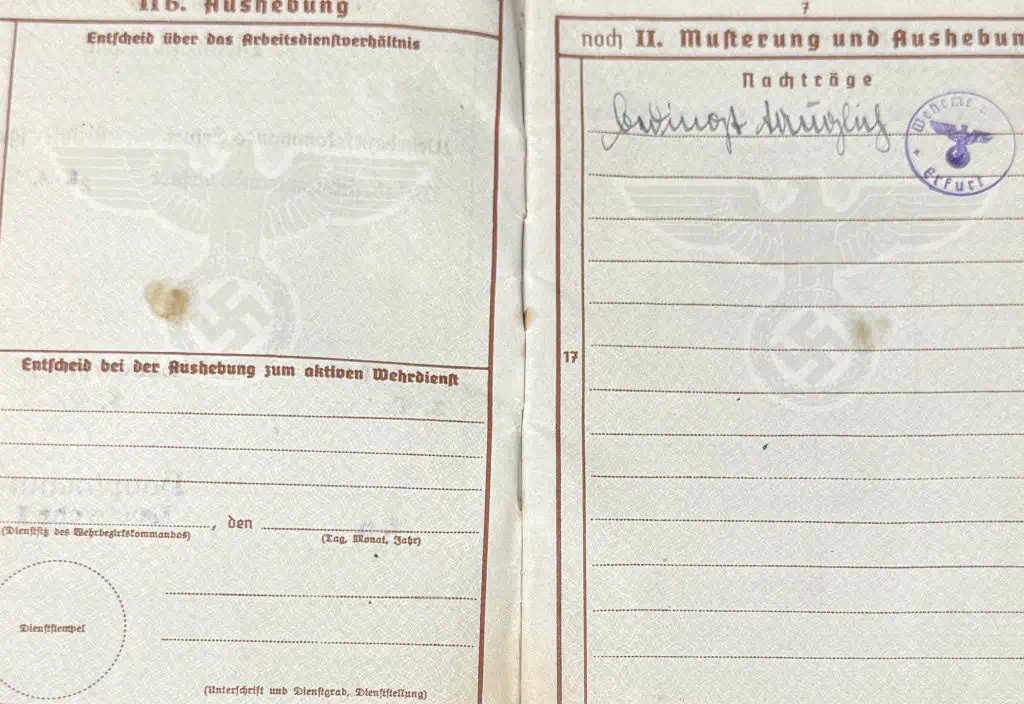 IIb. Aushebung
Entscheid über das Arbeitsdienstverhältnis
Entscheid bei der Aushebung zum aktiven Wehrdienst
, den
(Dienstsitz des Wehrbezirkskommandos)
(Tag, Monat, Jahr)
Dienststempel
(Unterschrift und Dienstgrad, Dienststellung)
7
noch II. Musterung und Aushebun
Nachträge
bedingt tauglich
Erfurt
17